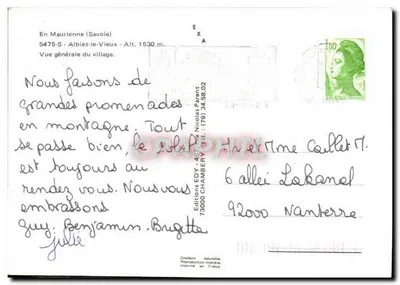 En Maurienne (Savoie)
5475-S - Albiez-le-Vieux - Alt. 1530 m.
Vue générale du village.
Nous faisons de
grandes promenades
en montagne. Tout
se passe bien, le soleil
est toujours au
rendez vous. Nous vous
embrassons
Guy. Benjamin. Brigitte
Julie
EXA
Editions EDY - 4, Nicolas Parent
73000 CHAMBERY (79) 34.58.02
Couleurs naturelles
Reproduction interdite
Imprimé en France
1,60
Mr et Mme Caillet M.
6 allei Lakanal
92000 Nanterre